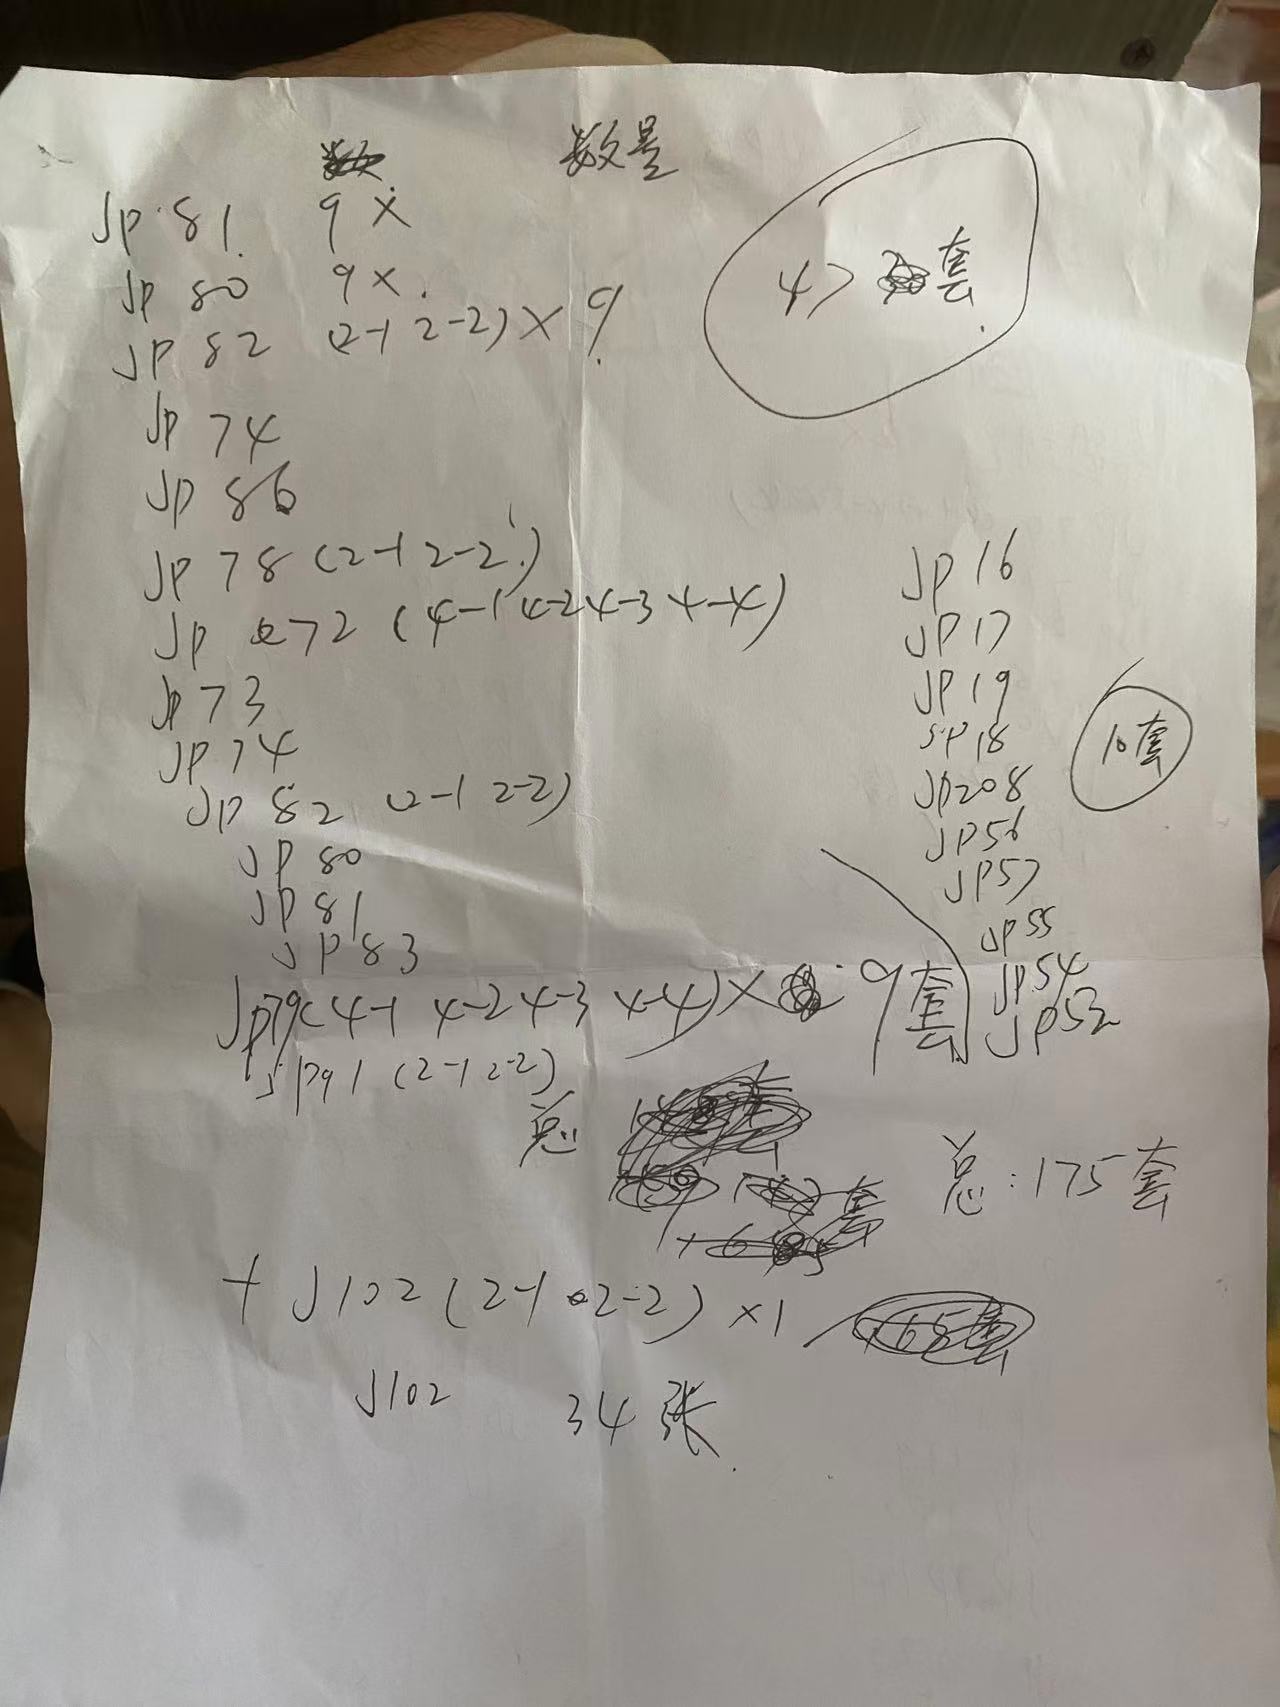 数量
JP 81 9 X
JP 80 9 X
JP 82 (2-1 2-2) X 9
47 套
JP 74
JP 86
JP 78 (2-1 2-2)
JP 72 (4-1 4-2 4-3 4-4)
JP 73
JP 74
JP 82 (2-1 2-2)
JP 80
JP 81
JP 83
JP79 (4-1 4-2 4-3 4-4) X 9套
JP91 (2-1 2-2)
JP16
JP17
JP19
JP18
JP208
JP56
JP57
JP55
JP54
JP52
10套
总
套
总：175套
+ J102 (2-1 2-2) ×1
J102 34张